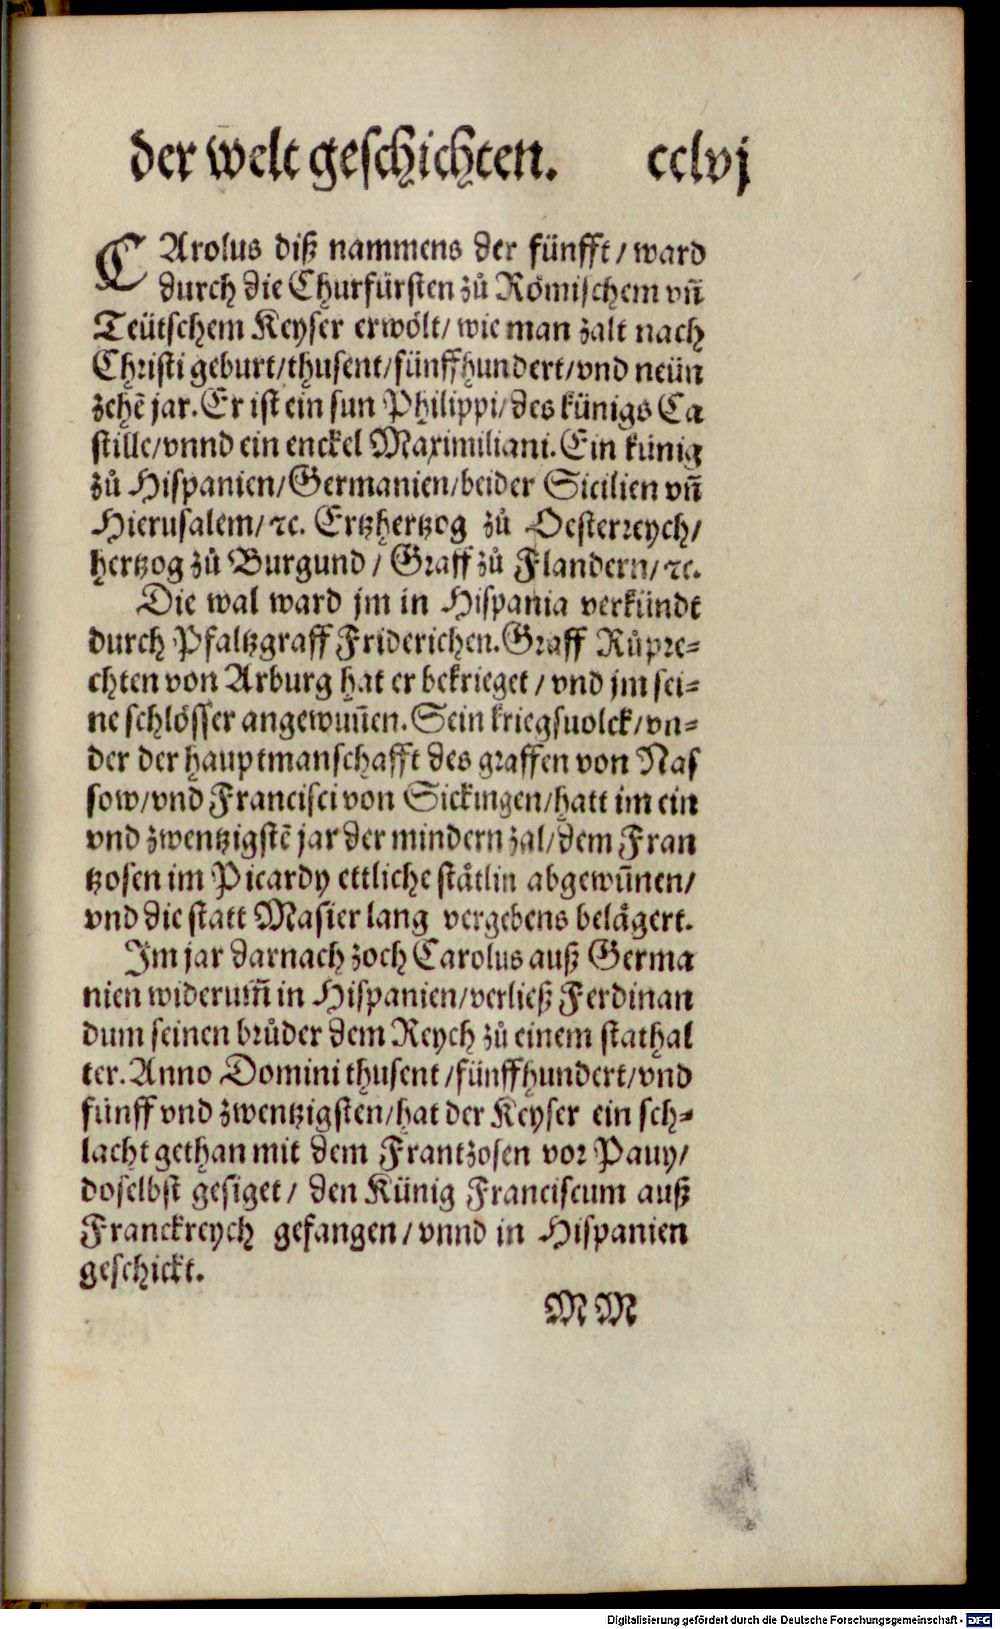 der welt geschichten. cclvj
CArolus diß nammens der fünfft/ ward
durch die Churfürsten zů Römischem vn̄
Teütschem Keyser erwölt/ wie man zalt nach
Christi geburt/thusent/fünffhundert/vnd neün
zehē jar. Er ist ein sun Philippi/des künigs Ca
stille/vnnd ein enckel Maximiliani. Ein künig
zů Hispanien/Germanien/beider Sicilien vn̄
Hierusalem/ ⁊c. Ertzhertzog zů Oesterreych/
hertzog zů Burgund / Graff zů Flandern/ ⁊c.
Die wal ward jm in Hispania verkündt
durch Pfaltzgraff Friderichen. Graff Růpre-
chten von Arburg hat er bekrieget / vnd jm sei-
ne schlösser angewun̄en. Sein kriegsuolck/ vn-
der der hauptmanschafft des graffen von Nas
sow/vnd Francisci von Sickingen/hatt im ein
vnd zwentzigstē jar der mindern zal/dem Fran
tzosen im Picardy ettliche stätlin abgewun̄en/
vnd die statt Masier lang vergebens belägert.
Im jar darnach zoch Carolus auß Germa
nien widerum̄ in Hispanien/verließ Ferdinan
dum seinen brůder dem Reych zů einem stathal
ter. Anno Domini thusent /fünffhundert/vnd
fünff vnd zwentzigsten/hat der Keyser ein sch-
lacht gethan mit dem Frantzosen vor Pauy/
doselbst gesiget/ den Künig Franciscum auß
Franckreych gefangen/ vnnd in Hispanien
geschickt.
MM
Digitalisierung gefördert durch die Deutsche Forschungsgemeinschaft - DFG